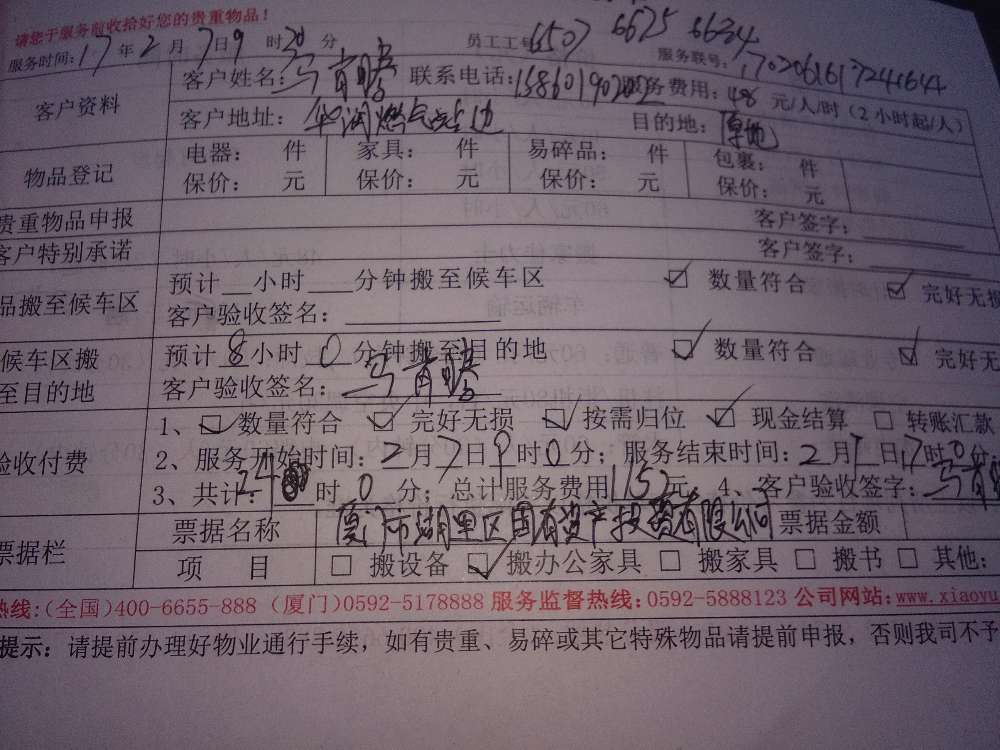 请您于服务前收拾好您的贵重物品！
服务时间：17年2月7日9时30分 员工工号6507 6625 6634 服务联号：
客户资料 客户姓名： 联系电话： 服务费用：48元/人/时（2小时起/人）
客户地址：华润燃气站边 目的地：原地
物品登记 电器： 件 家具： 件 易碎品： 件 包裹： 件
保价： 元 保价： 元 保价： 元 保价： 元
贵重物品申报 客户签字：
客户特别承诺 客户签字：
品搬至候车区 预计 小时 分钟搬至候车区 数量符合 完好无损
客户验收签名：
候车区搬至目的地 预计8小时0分钟搬至目的地 数量符合 完好无
客户验收签名：
验收付费 1、数量符合 完好无损 按需归位 现金结算 转账汇款
2、服务开始时间：2月7日9时0分；服务结束时间：2月7日17时0分
3、共计：24时0分；总计服务费用1152元 4、客户验收签字：
票据栏 票据名称 厦门市湖里区国有资产投资有限公司 票据金额
项目 搬设备 搬办公家具 搬家具 搬书 其他：
热线：(全国)400-6655-888（厦门)0592-5178888 服务监督热线：0592-5888123 公司网站：www.xiaoyu
提示：请提前办理好物业通行手续，如有贵重、易碎或其它特殊物品请提前申报，否则我司不予